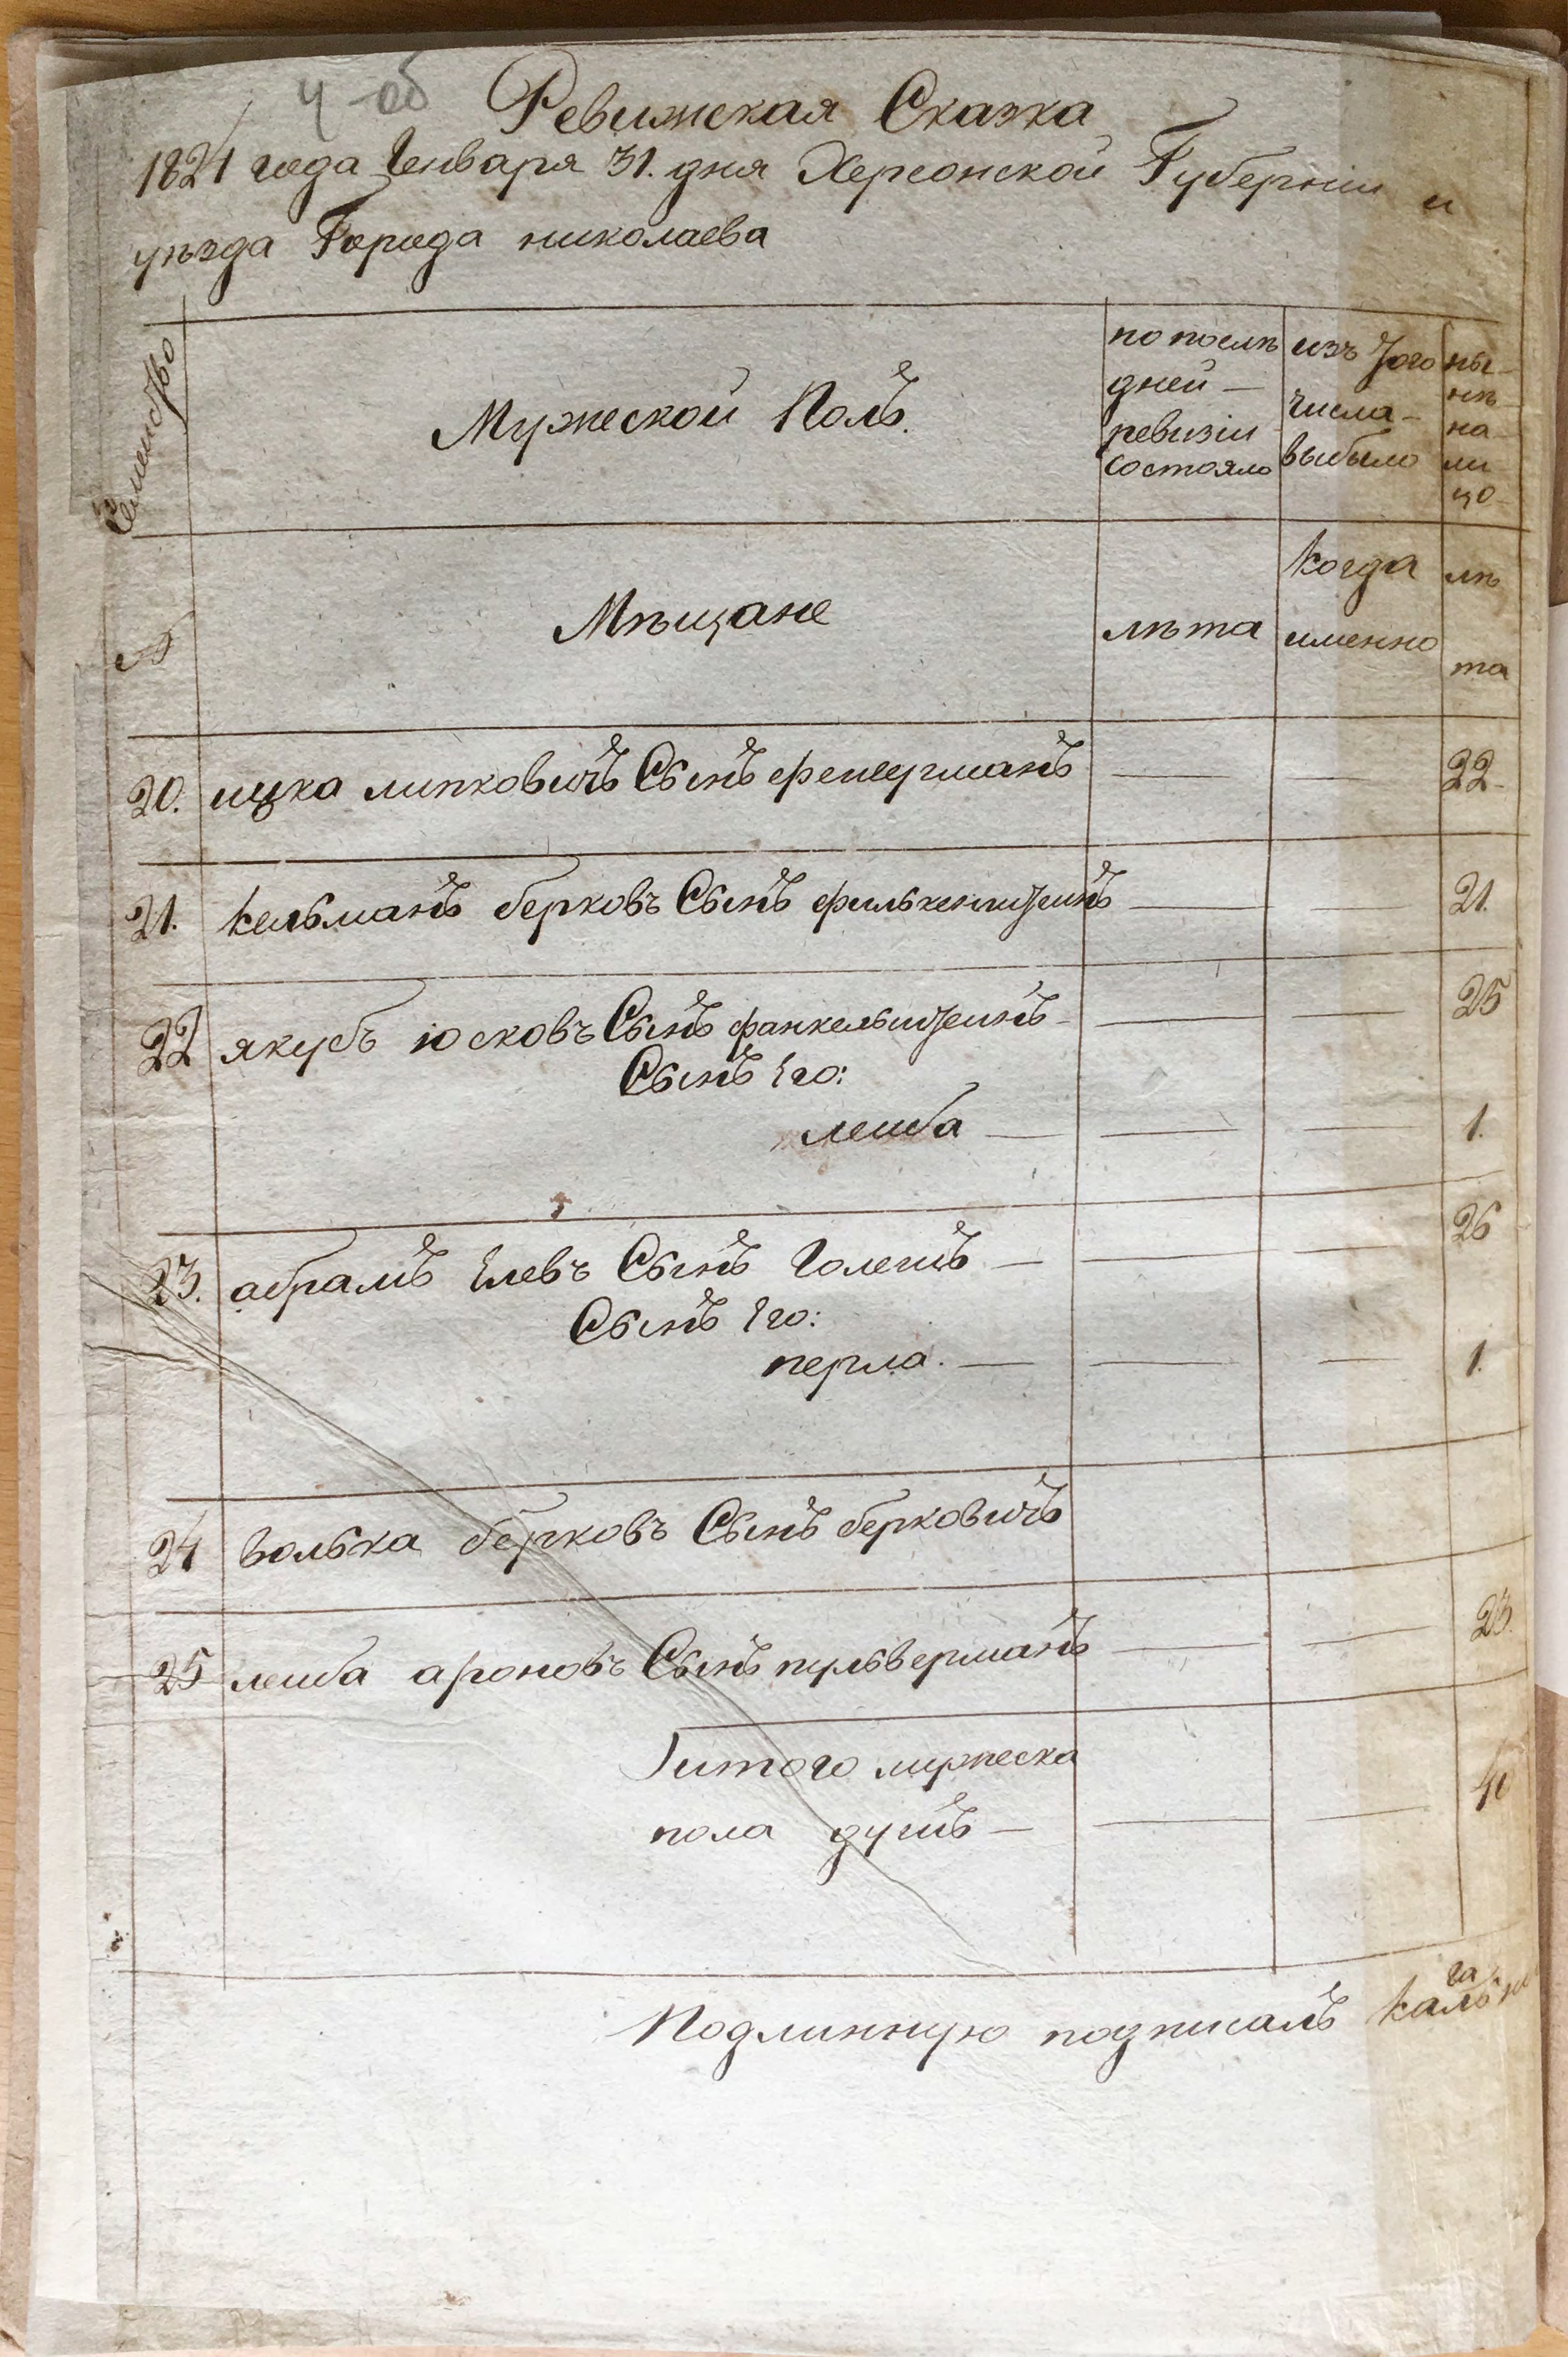 4 об
Ревижская Сказка
1821 года Генваря 31. дня Херсонской Губерніи и
уѣзда Города николаева
Семейство
Мужеской Полъ.
по послѣ
дней —
ревизіи
состояло
изъ того
числа —
выбыло
ны-
нѣ-
на-
ли
цо-
№
Мѣщане
лѣта
Когда
именно
лѣ
та
20. ицка липковичъ Сынъ фенсгиманъ 22-
21. Кельманъ берковъ Сынъ филькенштеинъ 21.
22 якубъ юсковъ Сынъ фанкельштеинъ 25
Сынъ Его:
леиба — 1.
23. абрамъ Елевъ Сынъ Голешъ — 26
Сынъ Его:
перла. — 1.
24 волька берковъ Сынъ берковичъ
25 леиба ароновъ Сынъ пульверманъ 23.
итого мужеска
пола душъ — 40
Подлинную подписалъ Кагалъ